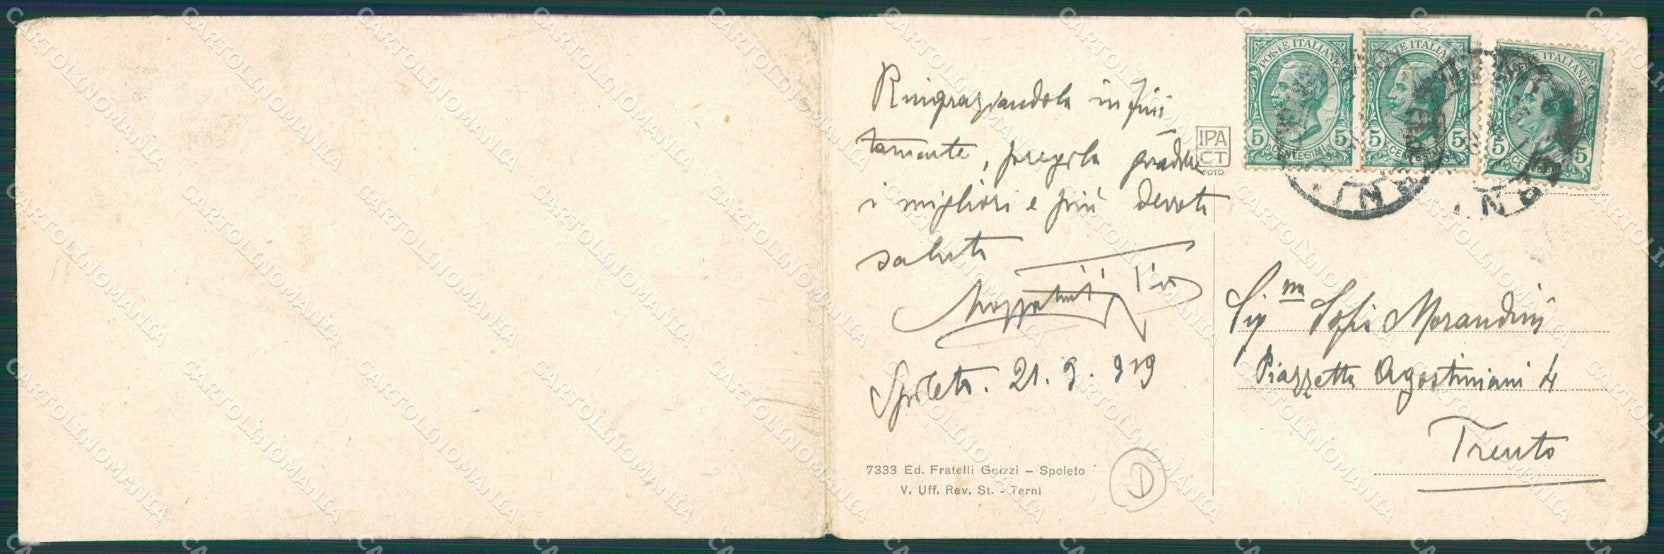 Ringraziandola infini
tamente, pregola gradire
i migliori e più devoti
saluti
Spoleto. 21. 9. 919
7333 Ed. Fratelli Guizzi – Spoleto
V. Uff. Rev. St. - Terni
D
IPA
CT
FOTO.
POSTE ITALIANE
5 5
CENTESIMI
POSTE ITALIANE
5 5
POSTE ITALIANE
5 5
Sig.na Sofia Morandini
Piazzetta Agostiniani 4
Trento
CARTOLINOMANIA